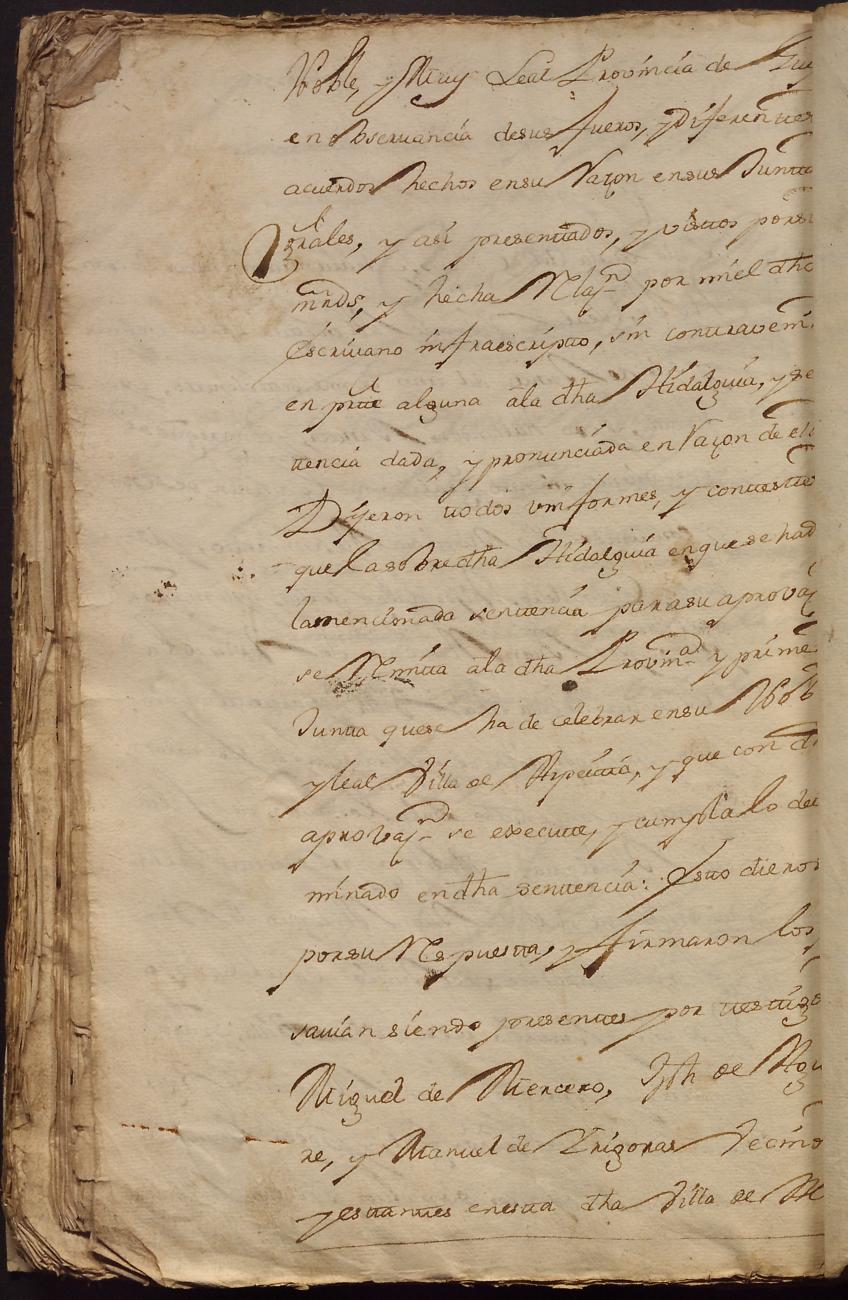 Noble, y Muy Leal Provincia de Gui
en observancia de sus fueros, y diferentes
acuerdos hechos en su Raçon en sus Juntas
grâles, y así presentados, y vistos por su
mrds, y hecha Relaçn por mi el dho
Escrivano infraescripto, sin contraveni
en prte alguna ala dha Hidalguia, y se
tencia dada, y pronunciada en Raçon de ell
Dijeron todos uniformes, y contestes
que la sobre dha Hidalguia en que se ha d
la mencionada sentencia para su aprovaç
se Remita ala dha Provinad y prime
Junta que se ha de celebrar en su Nob
y leal Villa de Azpeitia, y que con d
aprovaçn se execute, y cumpla lo de
minado en dha sentencia: Esto dieron
por su Respuesta, y firmaron los
savian siendo presentes por testigo
Miguel de Mercero, Jph de Agu
re, y Manuel de Yrigoras Vecino
y estantes en esta dha Villa de M